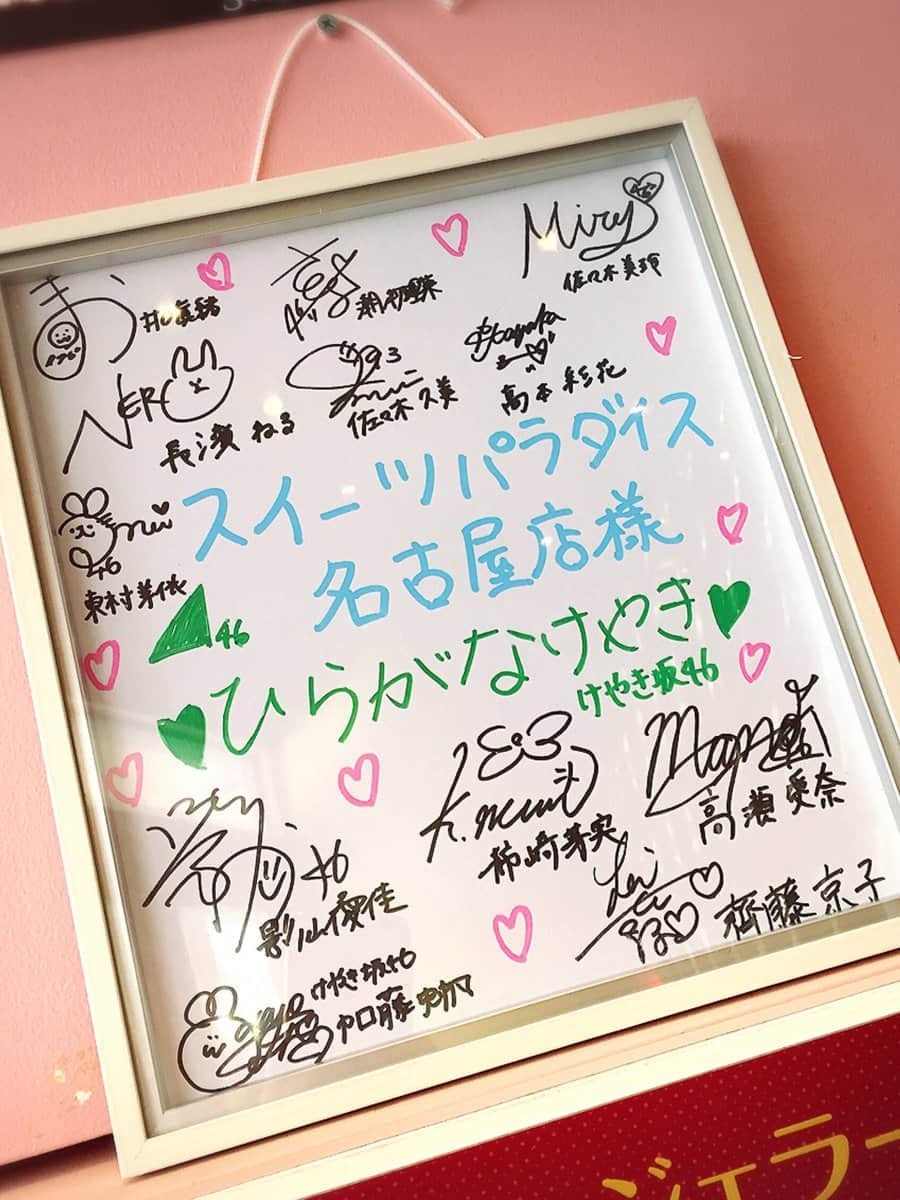 Mirey
46
佐々木美玲
潮紗理菜
お
井口眞緒
NERU
長濱ねる
93
佐々木久美
高本彩花
46
東村芽依
スイーツパラダイス
名古屋店様
46
ひらがなけやき
けやき坂46
柿崎芽実
高瀬愛奈
46
影山優佳
齊藤京子
けやき坂46
加藤史帆
ジェラー